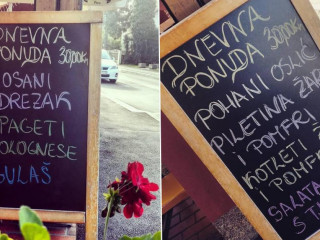 DNEVNA
PONUDA 30pok,
OSANI
DREZAK
PAGETI
OLOGNESE
ULAŠ
DNEVNA
PONUDA 30pok,
POHANI OSLIĆ
PILETINA ŽAR
I POMFRI
KOTLETI
POMF
SALATA